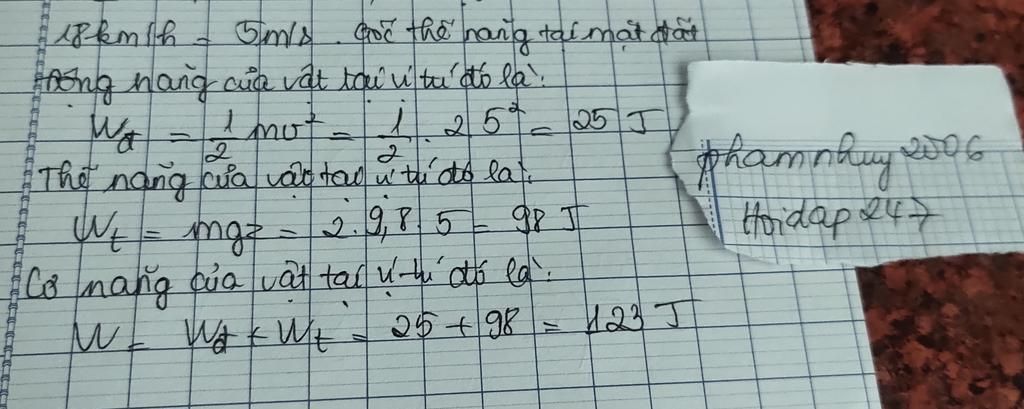 18km/h = 5m/s. gốc thế năng tại mặt đất
Động năng của vật tại vị trí đó là:
Wđ = 1/2 mv² = 1/2 . 2 5² = 25 J
Thế năng của vật tại vị trí đó là:
Wt = mgz = 2. 9,8 5 = 98 J
Cơ năng của vật tại vị trí đó là:
W = Wđ + Wt = 25 + 98 = 123 J
phamnhuy2006
Hoidap247